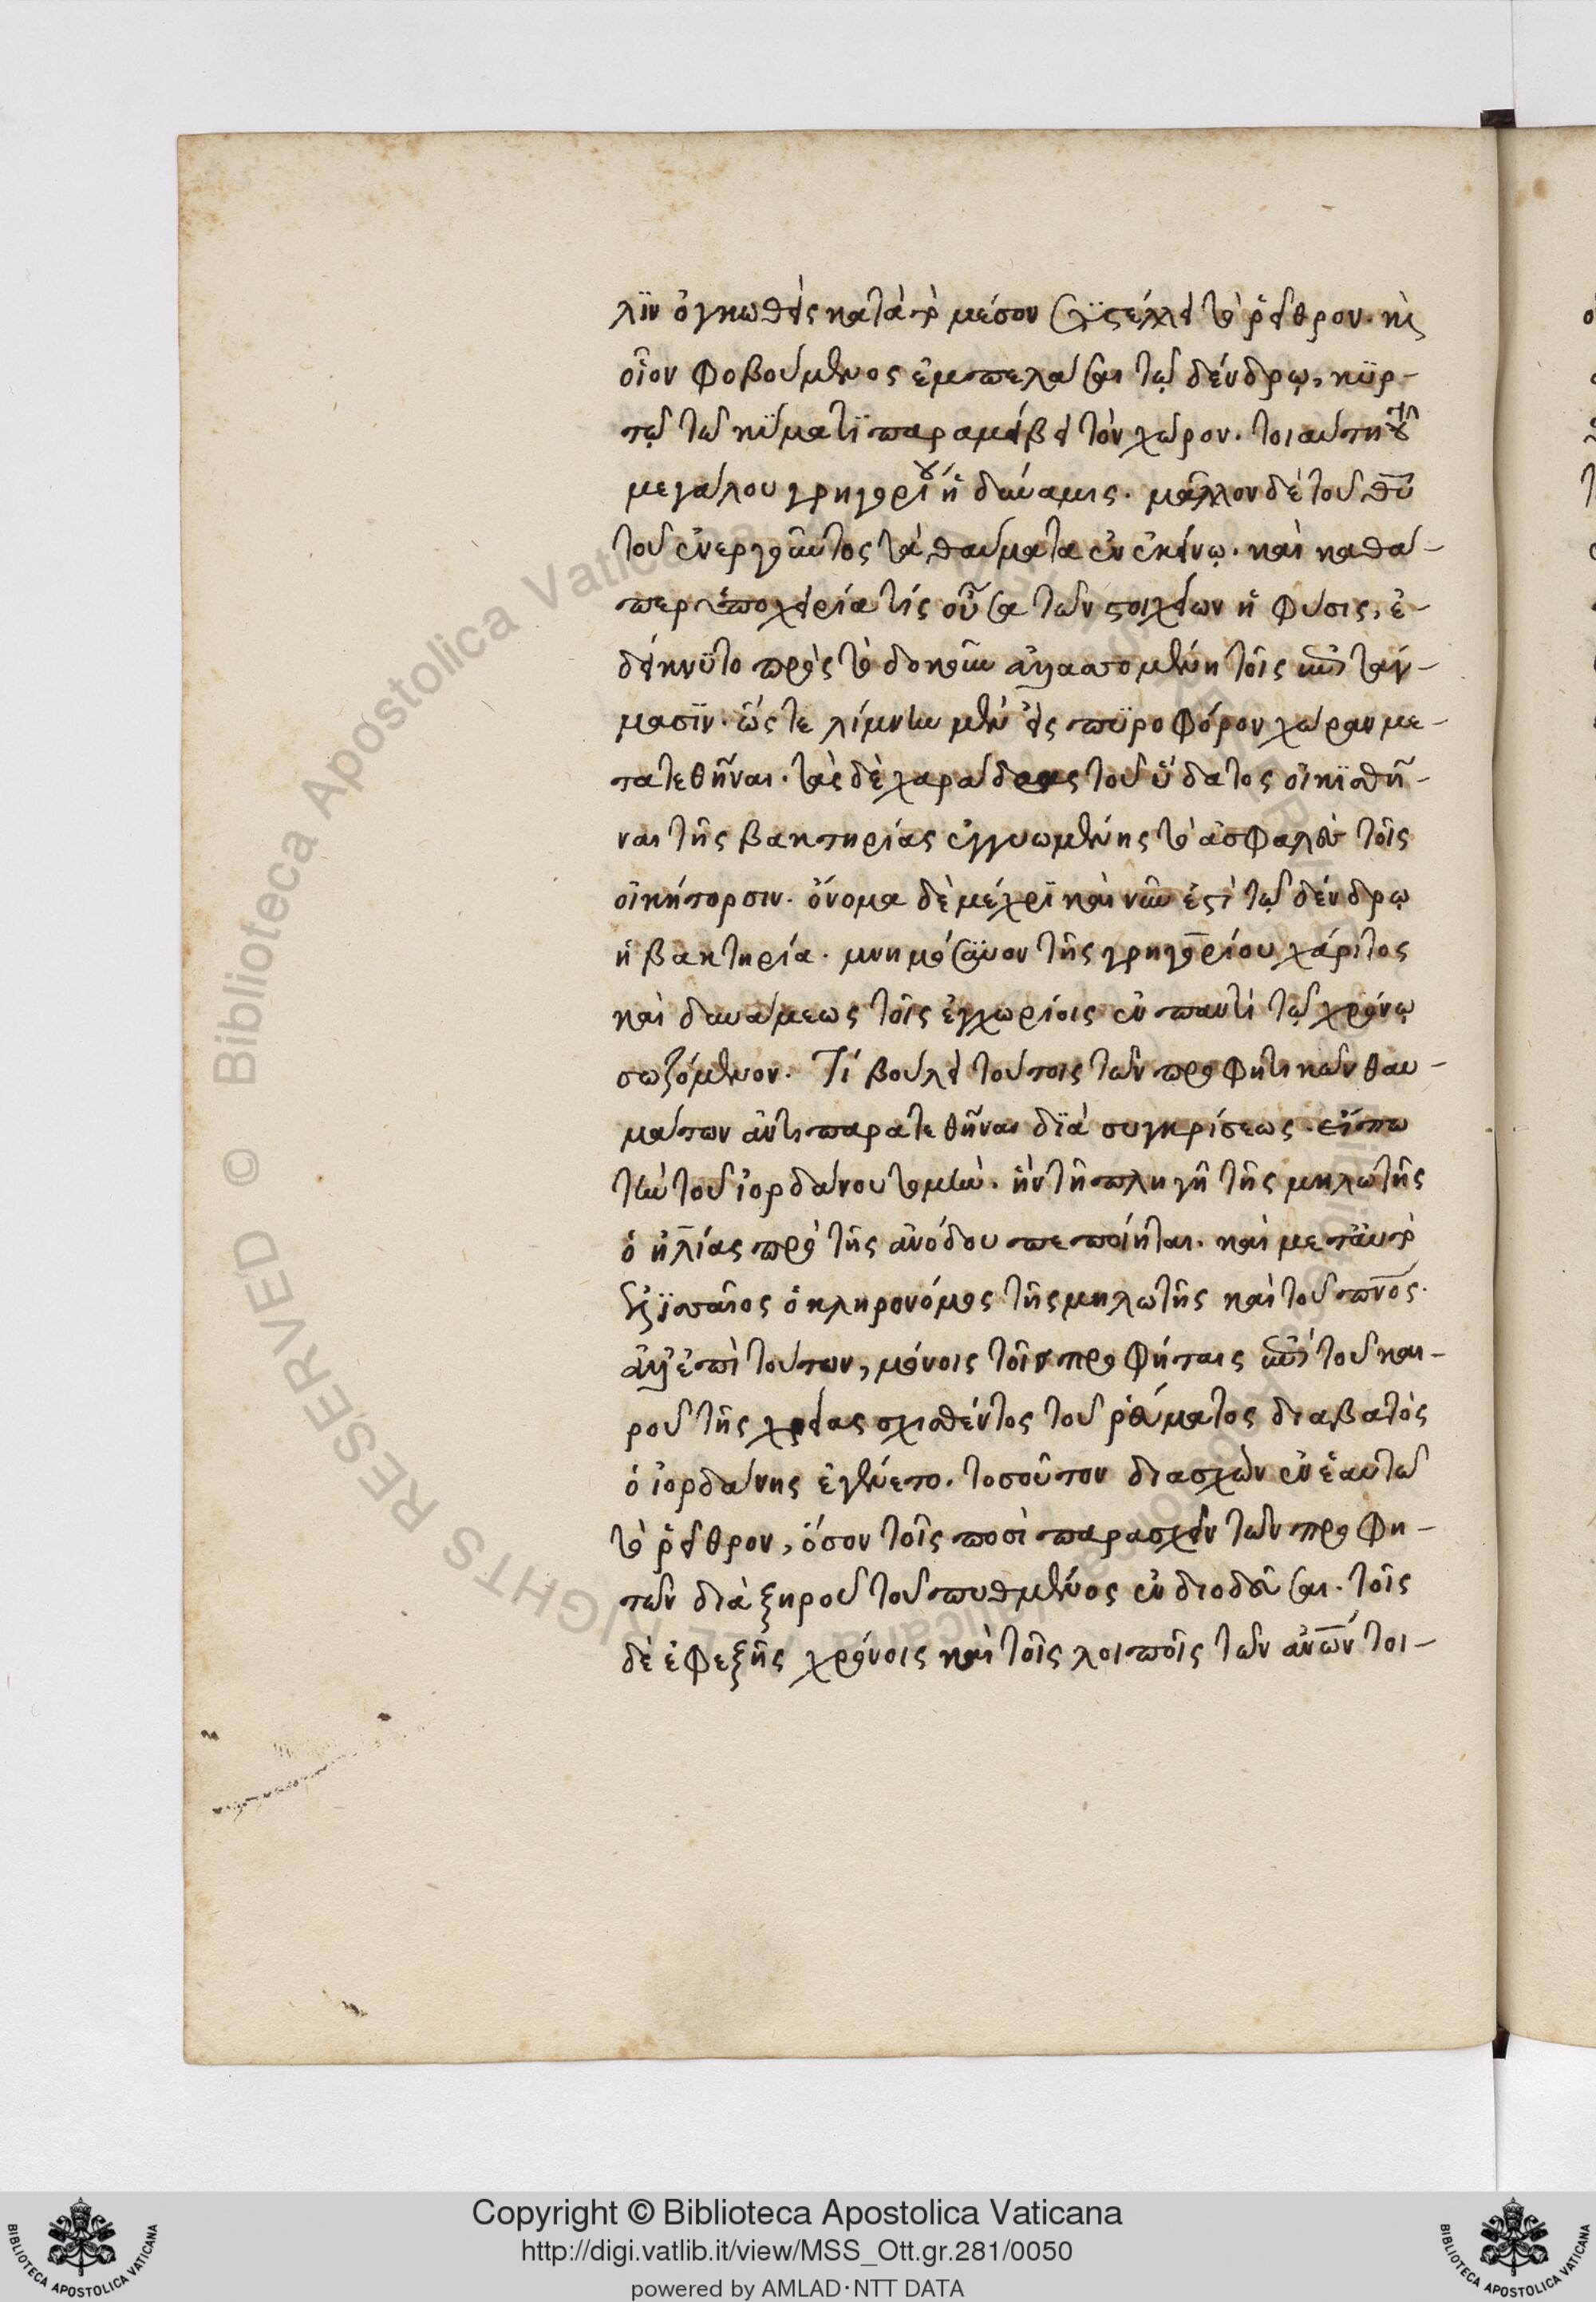 λϊν ὀγκωθεὶς κατὰ τὸ μέσον συστέλλει τὸ ῥεῖθρον. καὶ
οἷον φοβούμενος ἐμπελάσαι τῷ δένδρῳ, κϋρ-
τῷ τῷ κύματϊ παραμείβει τὸν χῶρον. τοιαύτη τοῦ
μεγάλου γρηγορίου ἡ δύναμις. μᾶλλον δὲ τοῦ θῦ
τοῦ ἐνεργοῦντος τὰ θαύματα ἐν ἐκείνῳ. καὶ καθά-
περ ὑποχειρία τίς οὖσα τῶν στοιχείων ἡ φύσις, ἐ-
δείκνϋτο πρὸς τὸ δοκοῦν ἀλλασσομένη τοῖς ἐπιτάγ-
μασϊν. ὥστε λίμνην μὲν εἰς πϋροφόρον χώραν με-
τατεθῆναι. τὰς δὲ χαράδρας τοῦ ὕδατος οἰκϊσθῆ-
ναι τῆς βακτηρίας ἐγγυωμένης τὸ ἀσφαλὲς τοῖς
οἰκήτορσιν. ὄνομα δὲ μέχρϊ καὶ νῦν ἐστὶ τῷ δένδρῳ
ἡ βακτηρία. μνημόσϋνον τῆς γρηγορίου χάριτος
καὶ δυνάμεως τοῖς ἐγχωρίοις ἐν παντὶ τῷ χρόνῳ
σωζόμενον. Τί βούλει τούτοις τῶν προφητικῶν θαυ-
μάτων ἀντιπαρατεθῆναι δϊὰ συγκρίσεως. εἴπω
τὴν τοῦ ἰορδάνου τομὴν. ἣν τῇ πληγῇ τῆς μηλωτῆς
ὁ ἠλίας πρὸ τῆς ἀνόδου πεποίηται. καὶ μετ' αὐτὸν
ἐλϊσσαῖος ὁ κληρονόμος τῆς μηλωτῆς καὶ τοῦ πνος.
ἀλλ' ἐπὶ τούτων, μόνοις τοῖς προφήταις ἐπὶ τοῦ και-
ροῦ τῆς χρείας σχισθέντος τοῦ ῥεύματος διαβατὸς
ὁ ἰορδάνης ἐγένετο. τοσοῦτον διασχὼν ἐν ἑαυτῷ
τὸ ῥεῖθρον, ὅσον τοῖς ποσὶ παρασχεῖν τῶν προφη-
τῶν διὰ ξηροῦ τοῦ πυθμένος ἐνδιοδεῦσαι. τοῖς
δὲ ἐφεξῆς χρόνοις καὶ τοῖς λοιποῖς τῶν ἀνων τοι-
Copyright © Biblioteca Apostolica Vaticana
http://digi.vatlib.it/view/MSS_Ott.gr.281/0050
powered by AMLAD·NTT DATA